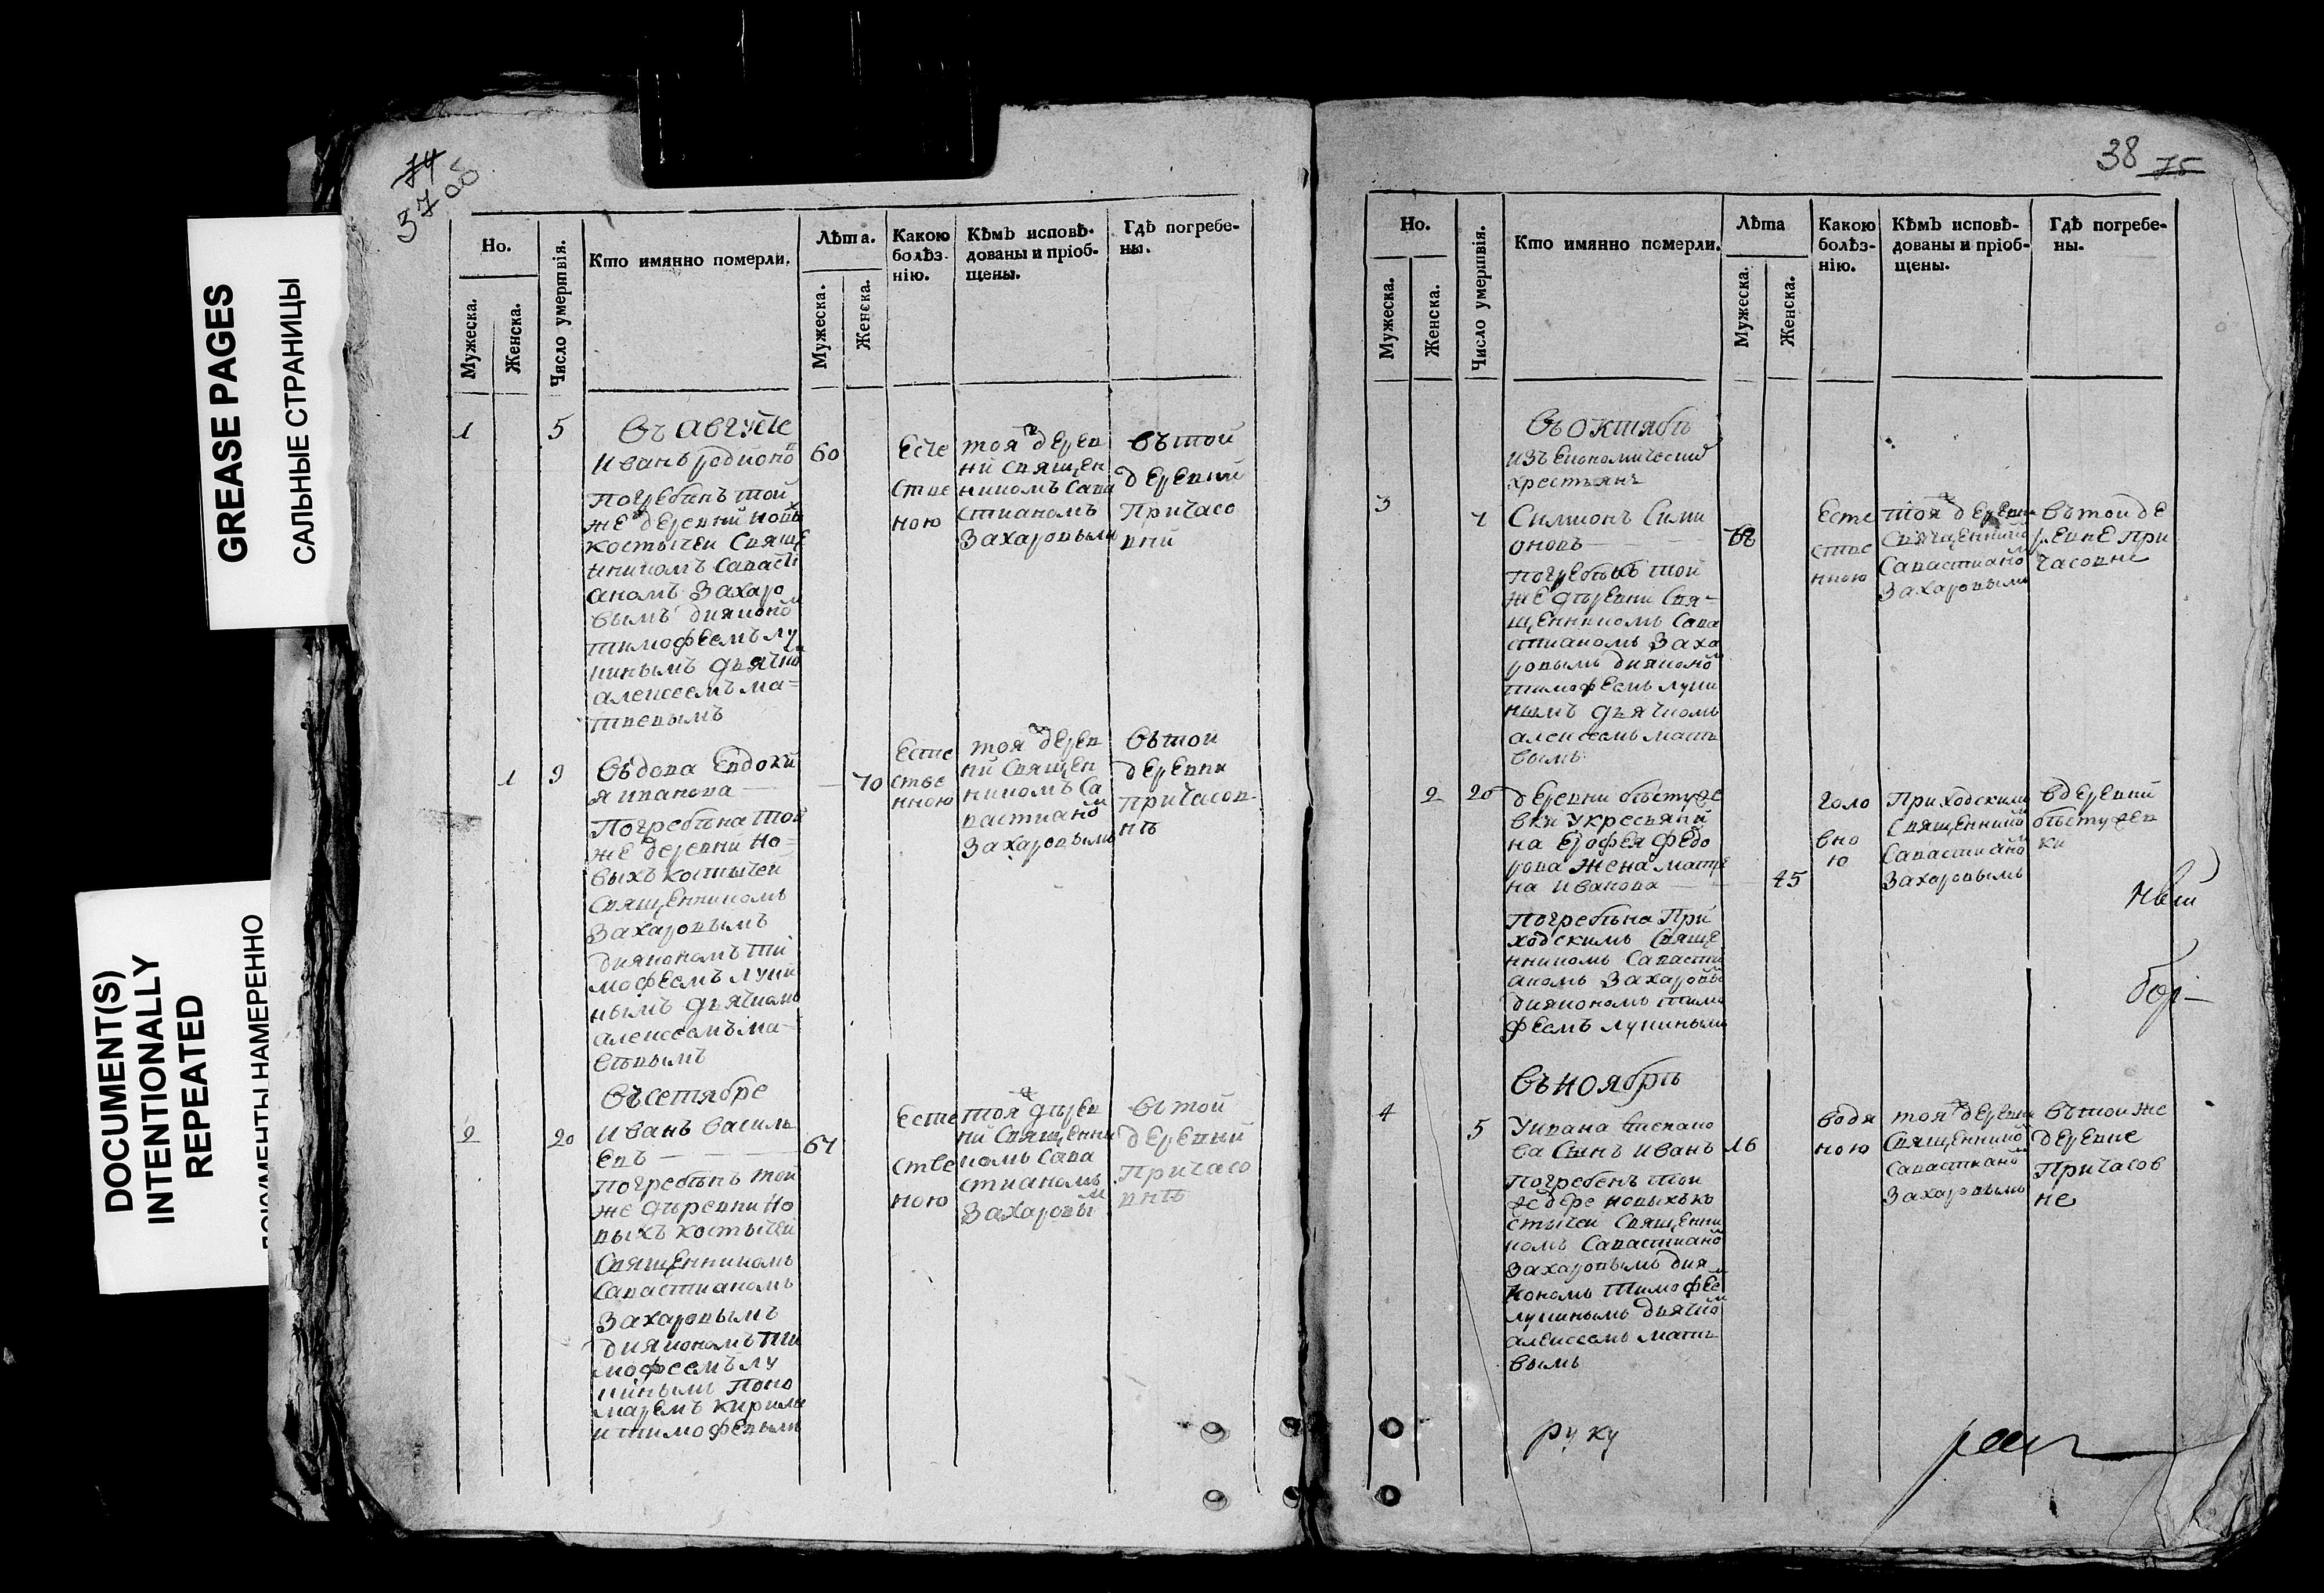 GREASE PAGES
САЛЬНЫЕ СТРАНИЦЫ
DOCUMENT(S)
INTENTIONALLY
REPEATED
ДОКУМЕНТЫ НАМЕРЕННО
74
37 об
Но.
Мужеска.
Женска.
Число умертвія.
Кто имянно померли.
Лѣта.
Мужеска.
Женска.
Какою
болѣз-
нію.
Кѣмъ исповѣ-
дованы и пріоб-
щены.
Гдѣ погребе-
ны.
Въ августе
1
5
Иванъ родионо
60
погребенъ той
же деревни новы
костычей свяще
нникомъ Савасти
аномъ Захаро
вымъ дияконо
тимофеемъ лу
кинымъ дьячко
алексеемъ ма-
твевымъ
Есте
стве
ною
тоя дерев
ни священ
никомъ Сава
стианомъ
Захаровым
въ той
деревни
при часо
вни
1
9
Въдова Евдоки
я иванова
70
погребена той
же деревни но-
выхъ костычей
священникомъ
Захаровымъ
диякономъ ти
мофеемъ луки
нымъ дьячкомъ
алексеемъ ма-
Есте
стве
нною
тоя дерев
ни священ
никомъ Са
вастиано
Захаровымъ
въ той
деревни
при часов
нѣ
Въ сетябре
2
20
Иванъ василь
евъ
67
погребенъ той
же деревни но
выхъ костычей
священникомъ
Савастианомъ
Захаровымъ
диякономъ ти
мофеемъ лу
кинымъ поно
маремъ кирилы
тимофевым
Есте
стве
ною
тоя дерев
ни священни
комъ Сава
стианомъ
Захаровы
въ той
деревни
при часо
внѣ
38 75
Но.
Мужеска.
Женска.
Число умертвія.
Кто имянно померли.
Лѣта
Мужеска.
Женска.
Какою
болѣз-
нію.
Кѣмъ исповѣ-
дованы и пріоб-
щены.
Гдѣ погребе-
ны.
Въ октябрѣ
изъ економически
хрестьянъ
3
7
Симионъ Сими
оновъ
погребенъ той
же деревни свя-
щенникомъ Сава
стианомъ Заха
ровымъ дияконо
тимофеемъ луки
нымъ дьячкомъ
алексеемъ матв
вымъ
Есте
стве
нною
тоя деревни
священнико
Савастиано
Захаровым
въ той де
ревне при
часовне
2
20
деревни бестуже
вки у кресьяни
на Ерофея Федо
рова жена матре
на иванова
45
погребена при
ходскимъ свяще
нникомъ Савасти
аномъ Захаровы
дияконом тимо
феемъ лукиным
голо
вно
ю
приходским
священнико
Савастиано
Захаровымъ
в деревни
бестужев
ки
бог-
Въ ноябрѣ
4
5
ва сынъ иванъ
16
погребенъ той
же дере новыхъ ко
стычей священни
комъ Савастиано
Захаровымъ дия
кономъ тимофее
лукинымъ дьячко
алексеемъ матв
вымъ
водя
ною
тоя деревни
священнико
Савастиано
Захаровымъ
въ той же
деревне
при часов
не
руку